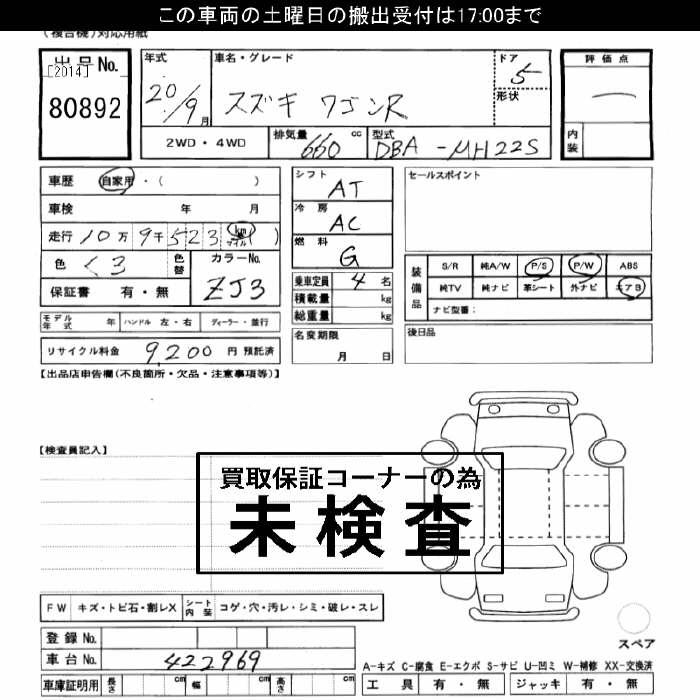 この車両の土曜日の搬出受付は17:00まで
(複合機)対応用紙
出品No.
[2014]
80892
年式
20/9月
車名・グレード
スズキ ワゴンR
ドア
5
形状
評価点
内装
2WD・4WD
排気量
660 cc
型式
DBA-MH22S
車歴 自家用・( )
車検 年 月
走行 10万9千523 km マイル ( )
色 くろ
色替
カラーNo.
ZJ3
保証書 有・無
シフト
AT
冷房
AC
燃料
G
セールスポイント
乗車定員 4名
積載量 kg
総重量 kg
装備品
S/R 純A/W P/S P/W ABS
純TV 純ナビ 革シート 外ナビ エアB
ナビ型番:
モデル年式 年 ハンドル 左・右 ディーラー・並行
リサイクル料金 9,200 円 預託済
名変期限
月 日
後日品
【出品店申告欄(不良箇所・欠品・注意事項等)】
【検査員記入】
買取保証コーナーの為
未検査
FW キズ・トビ石・割レX シート内装 コゲ・穴・汚レ・シミ・破レ・スレ
登録No.
車台No. 422969
車庫証明用 長さ cm 幅 cm 高さ cm
スペア
A-キズ C-腐食 E-エクボ S-サビ U-凹ミ W-補修 XX-交換済
工具 有・無 ジャッキ 有・無